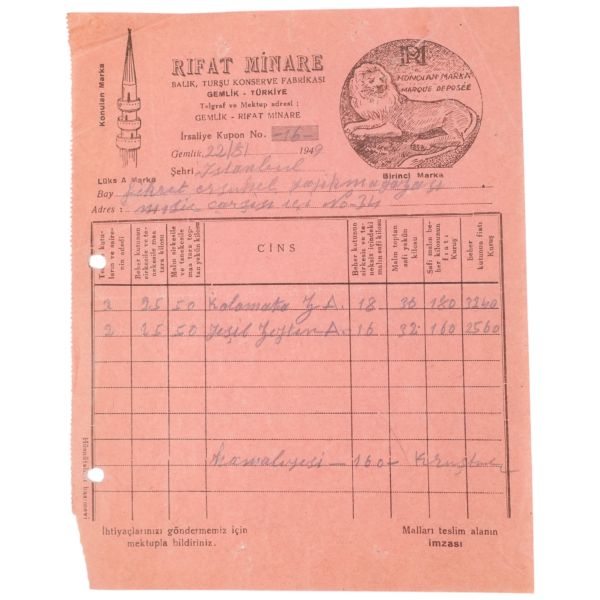 Konulan Marka
RIFAT MİNARE
BALIK, TURŞU KONSERVE FABRİKASI
GEMLİK - TÜRKİYE
Telgraf ve Mektup adresi :
GEMLİK - RIFAT MİNARE
İrsaliye Kupon No. -16-
Gemlik, 22/5/1949
Şehri İstanbul
Lüks A Marka
HONOLAN MARKA
MARQUE DEPOSÉE
Birinci Marka
Bay Fikret
Adres : çarşısı içi No 34
CİNS
Beher kutunun sirkesile ve tenekesile maa tara kilosu
Malın sirkesile ve tenekesile maa tara toptan yakûn kilosu
Beher kutunun sirkesiz ve tenekesiz içindeki malın safi kilosu
Malın toptan safi yakûn kilosu
Safi malın beher kilosunun fiatı Kuruş
beher kutunun fiatı Kuruş
2 25 50 Kalamata Z A. 18 36 180 3240
2 25 50 Yeşil Zeytin A. 16 32 160 2560
- 160 -
İhtiyaçlarınızı göndermemiz için
mektupla bildiriniz.
Malları teslim alanın
imzası